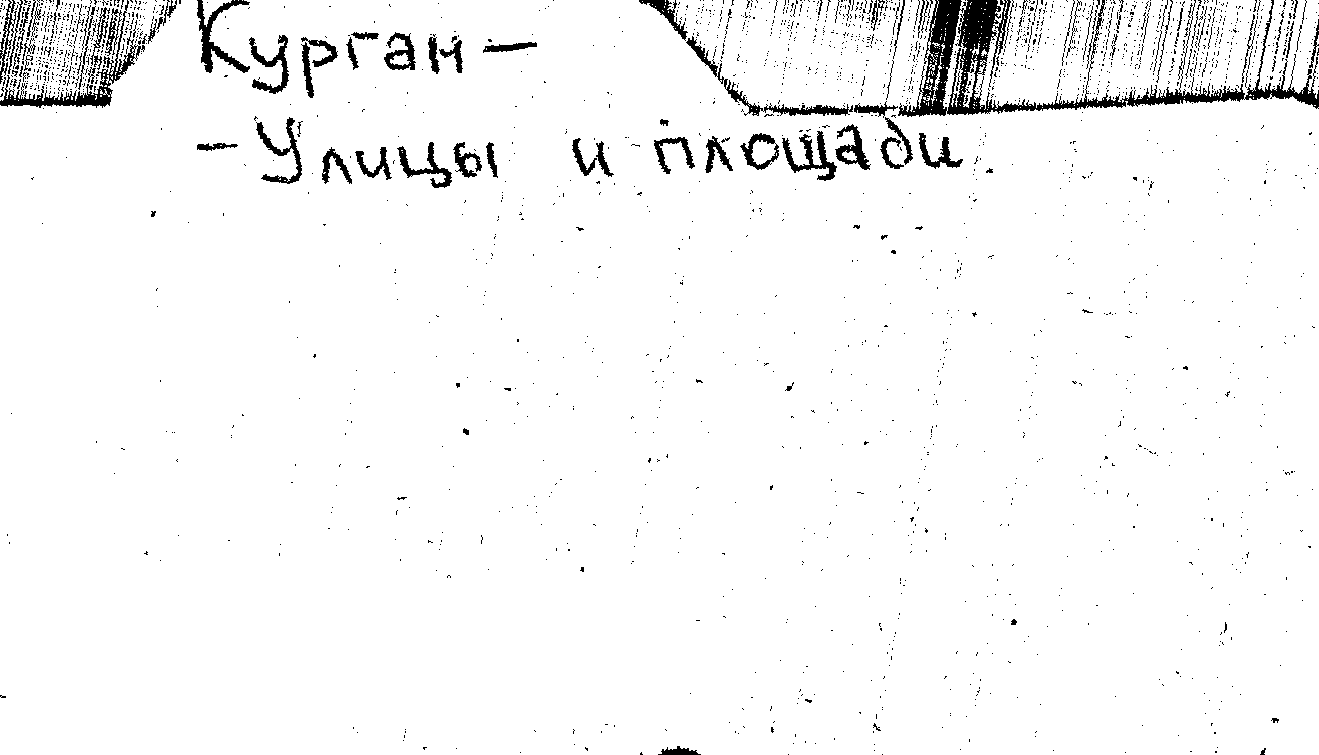 Курган —
— Улицы и площади